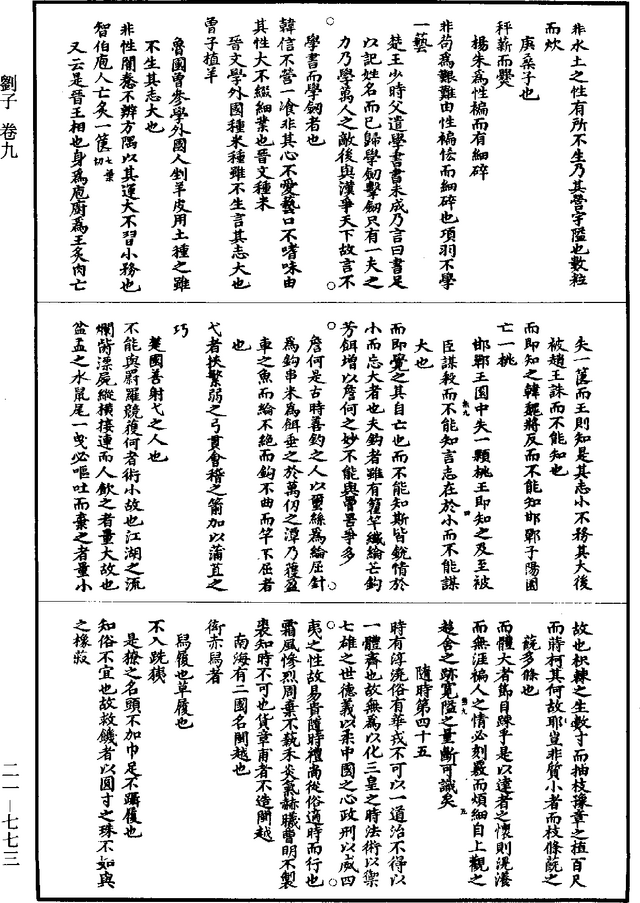 劉子 卷九
非水土之性有所不生乃其營宇隘也數粒
而炊
庚桑子也
秤薪而爨
楊朱為性褊而有細碎
非苟為艱難由性褊恡而細碎也項羽不學
一藝
楚王少時父遣學書書未成乃言曰書足
以記姓名而已歸學劎擊劎只有一夫之
力乃學萬人之敵後與漢爭天下故言不
學書而學劎者也
韓信不營一飡非其心不愛藝口不嗜味由
其性大不綴細業也晉文種米
晉文學外國種米種雖不生言其志大也
曾子植羊
魯國曾參學外國人剉羊皮用土種之雖
不生其志大也
非性闇惷不辨方隅以其運大不習小務也
智伯庖人亡炙一篋七葉切
又云是晉王相也身為庖廚為王炙肉亡
失一篋而王則知是其志小不務其大後
被趙王誅而不能知也
而即知之韓魏將反而不能知邯鄲子陽園
亡一桃
邯鄲王園中失一顆桃王即知之及至被
臣謀殺而不能知言志在於小而不能謀
大也
而即覺之其自亡也而不能知斯皆銳情於
小而忘大者也夫鈎者雖有籊竿纖綸芒鈎
芳餌增以詹何之妙不能與罾罟爭多
詹何是古時善釣之人以蠒絲為綸屈針
為鈎串米為餌垂之於萬仞之潭乃獲盈
車之魚而綸不絶而鈎不曲而竿不屈者
也
弋者挾繁弱之弓貫會稽之箭加以蒲苴之
巧
楚國善射弋之人也
不能與罻羅競獲何者術小故也江湖之流
爛胔漂屍縱橫接連而人飲之者量大故也
盆盂之水鼠尾一曳必嘔吐而棄之者量小
故也枳棘之生數寸而抽枝豫章之植百尺
而蒔柯其何故耶豈非質小者而枝條蓛之
蓛多條也
而體大者節目踈乎是以達者之懷則滉瀁
而無涯褊人之情必刻覈而煩細自上觀之
趍舍之跡寬隘之量斷可識矣
隨時第四十五
時有淳澆俗有華戎不可以一道治不得以
一體齊也故無為以化三皇之時法術以禦
七雄之世德義以柔中國之心政刑以威四
夷之性故易貴隨時禮尚從俗適時而行也
霜風慘烈周棄不藝禾炎氣赫曦曹明不製
裘知時不可也貨章甫者不造閩越
南海有二國名閩越也
衒赤舄者
舄履也草履也
不入跣獠
是獠之名頭不加巾足不躡履也
知俗不宜也故救饑者以圓寸之珠不如與
之橡菽
二一—七七三